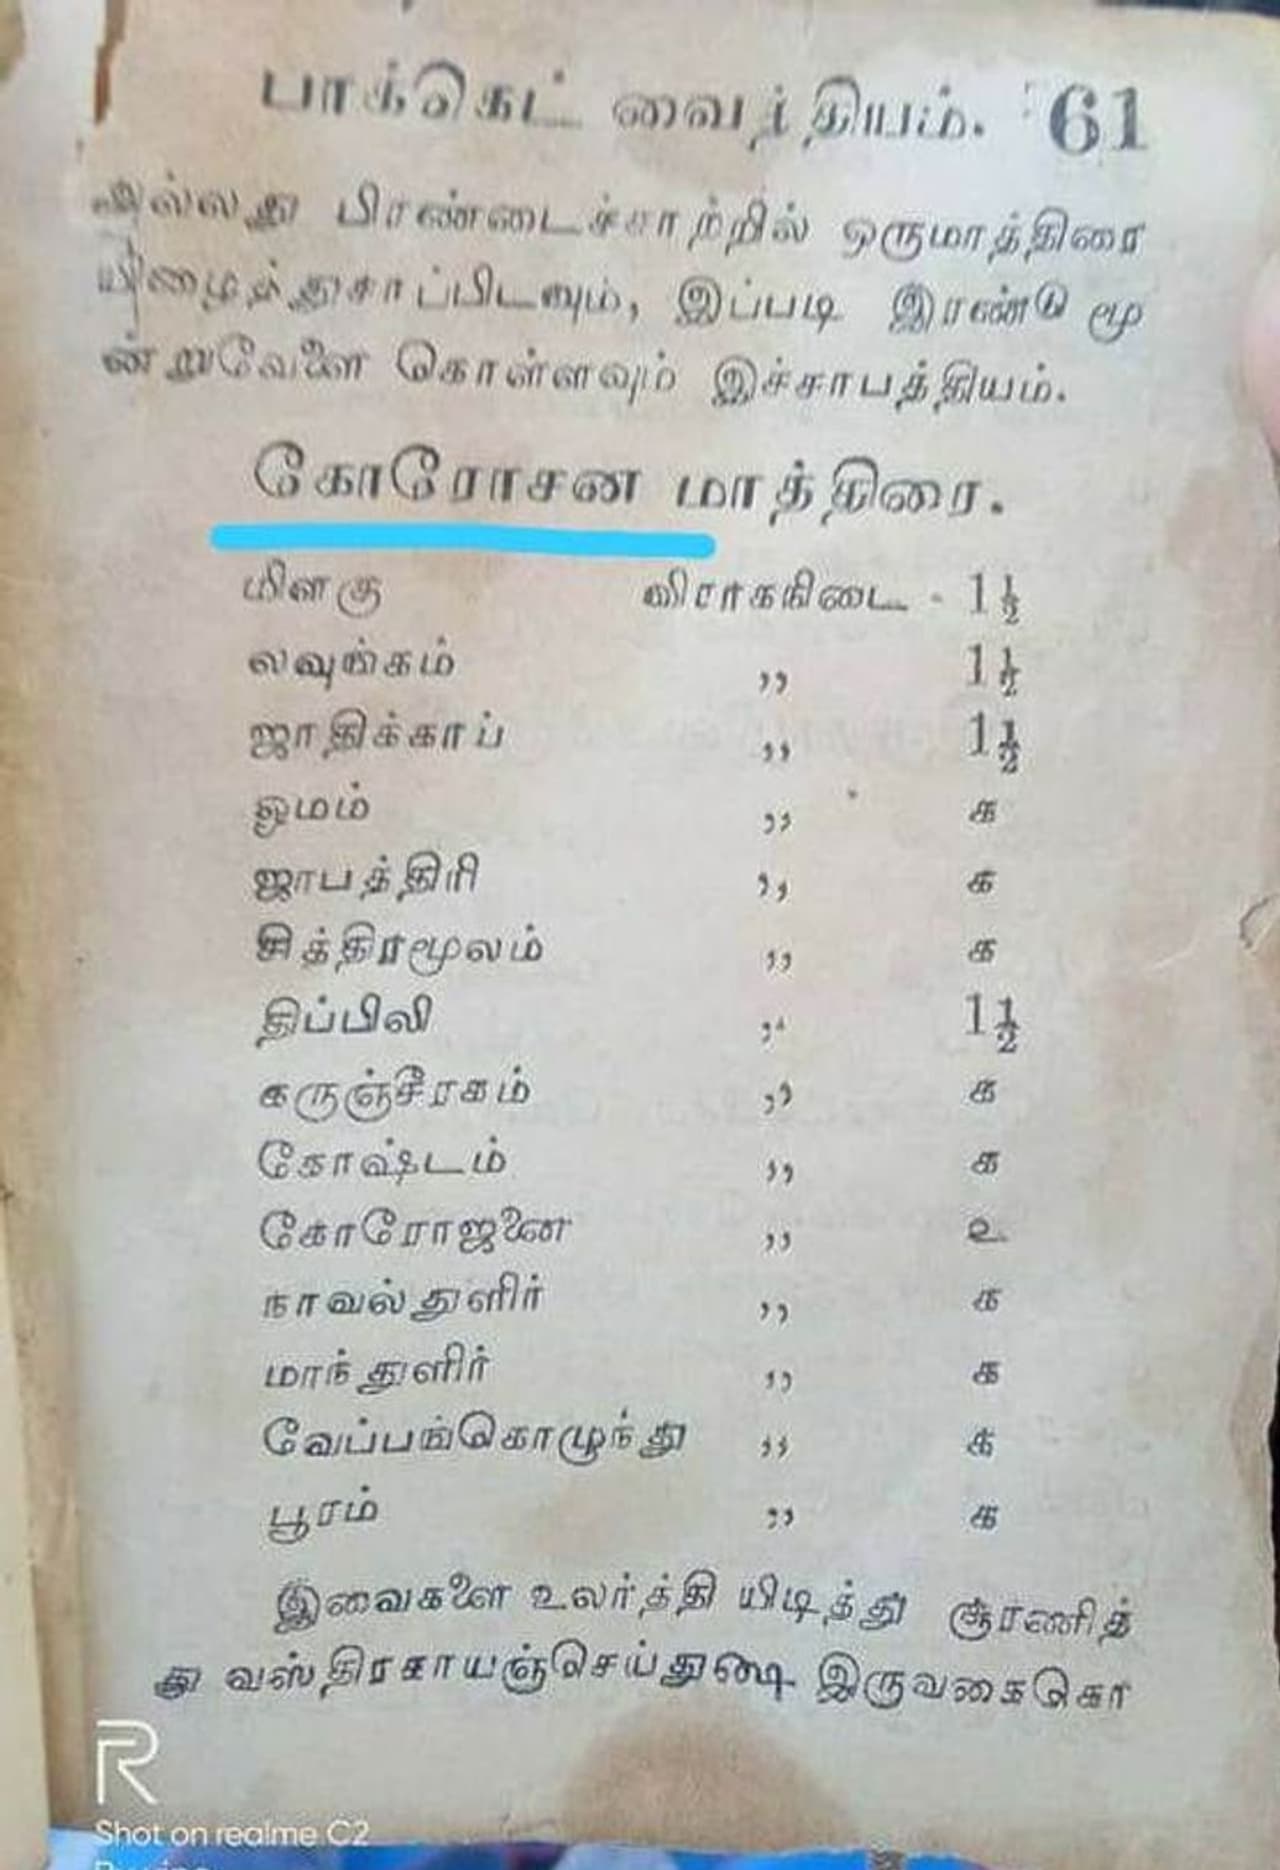 பாக்கெட் வைத்தியம். 61
அல்லது பிரண்டைச்சாற்றில் ஒருமாத்திரை
யிழைத்துசாப்பிடவும், இப்படி இரண்டு மூ
ன்றுவேளை கொள்ளவும் இச்சாபத்தியம்.
கோரோசன மாத்திரை.
மிளகு விராகநிடை - 1½
லவுங்கம் ,, 1½
ஜாதிக்காய் ,, 1½
ஓமம் ,, க
ஜாபத்திரி ,, க
சித்திரமூலம் ,, க
திப்பிலி ,, 1½
கருஞ்சீரகம் ,, க
கோஷ்டம் ,, க
கோரோஜனை ,, உ
நாவல்துளிர் ,, க
மாந்துளிர் ,, க
வேப்பங்கொழுந்து ,, க
பூரம் ,, க
இவைகளை உலர்த்தி யிடித்து சூரணித்
து வஸ்திரகாயஞ்செய்துஷை இருவகைகொ
R
Shot on realme C2